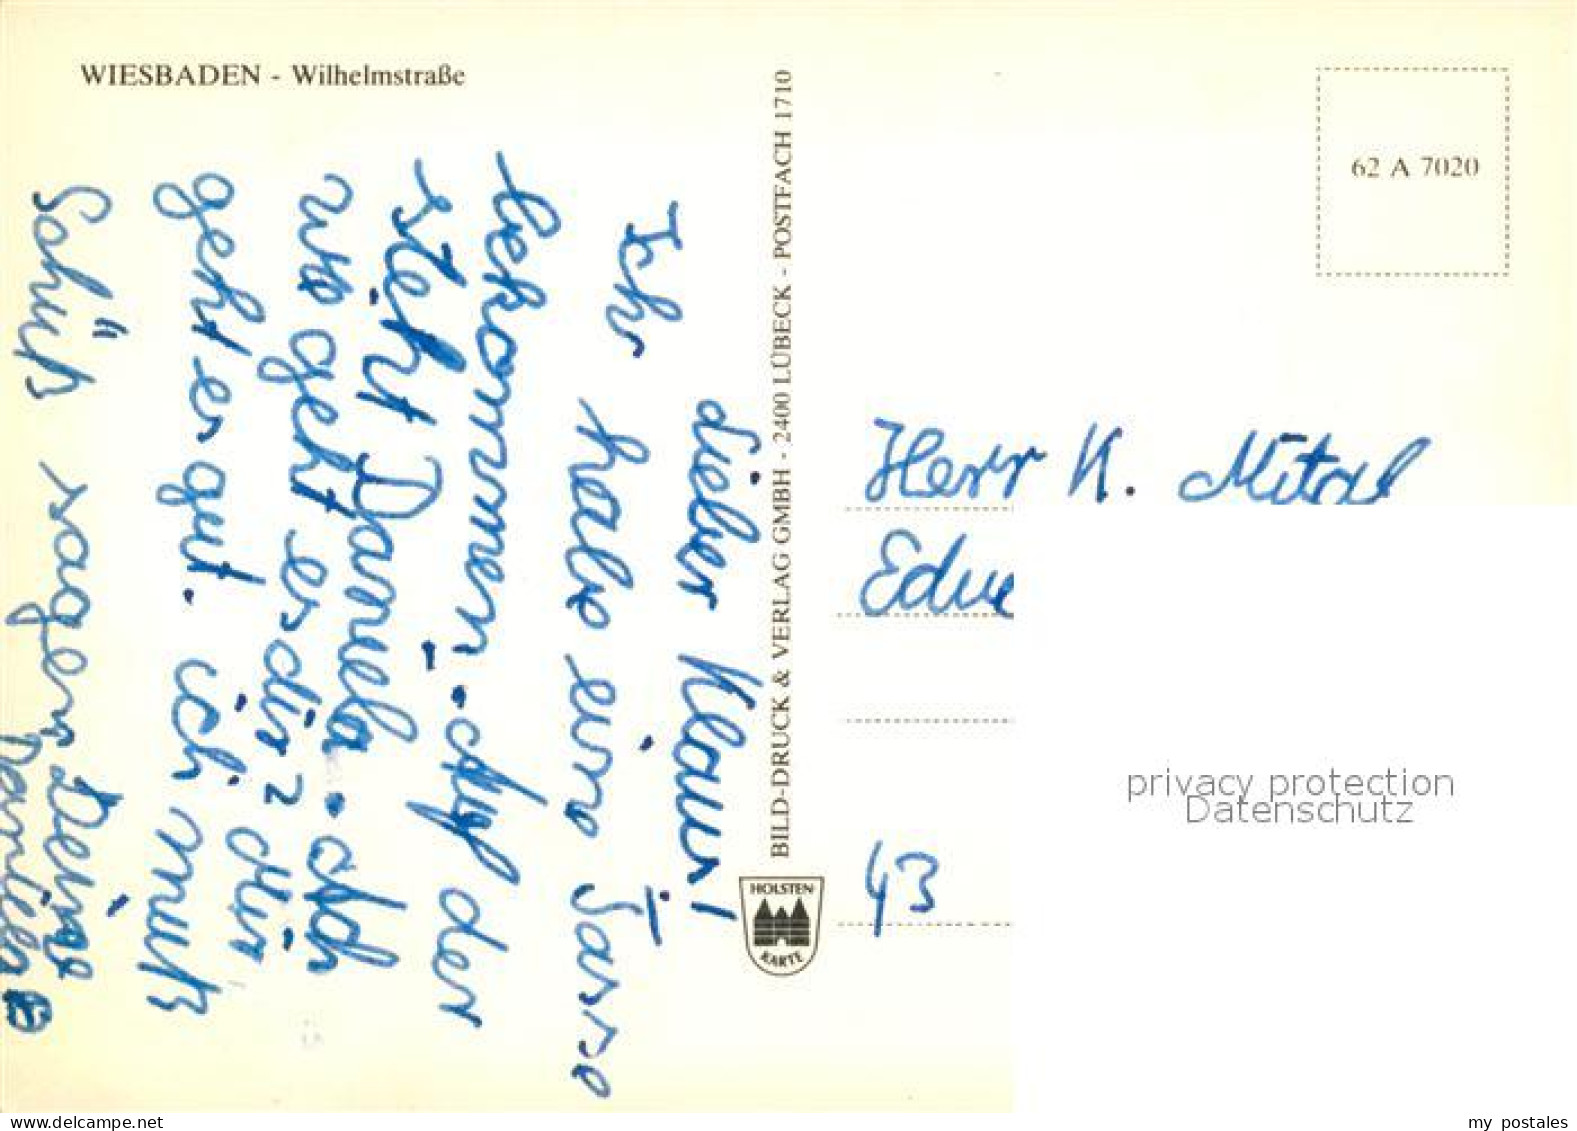 WIESBADEN - Wilhelmstraße
62 A 7020
BILD-DRUCK & VERLAG GMBH - 2400 LÜBECK - POSTFACH 1710
HOLSTEN
KARTE
Lieber Klaus!
Ich habe eine Tasse
bekommen. Auf der
steht Daniela. Ach
wie geht es dir? Mir
geht es gut. ich muß
Schluß sagen Deine
Daniela
Herr K.
43
privacy protection
Datenschutz
delcampe.net
my_postales